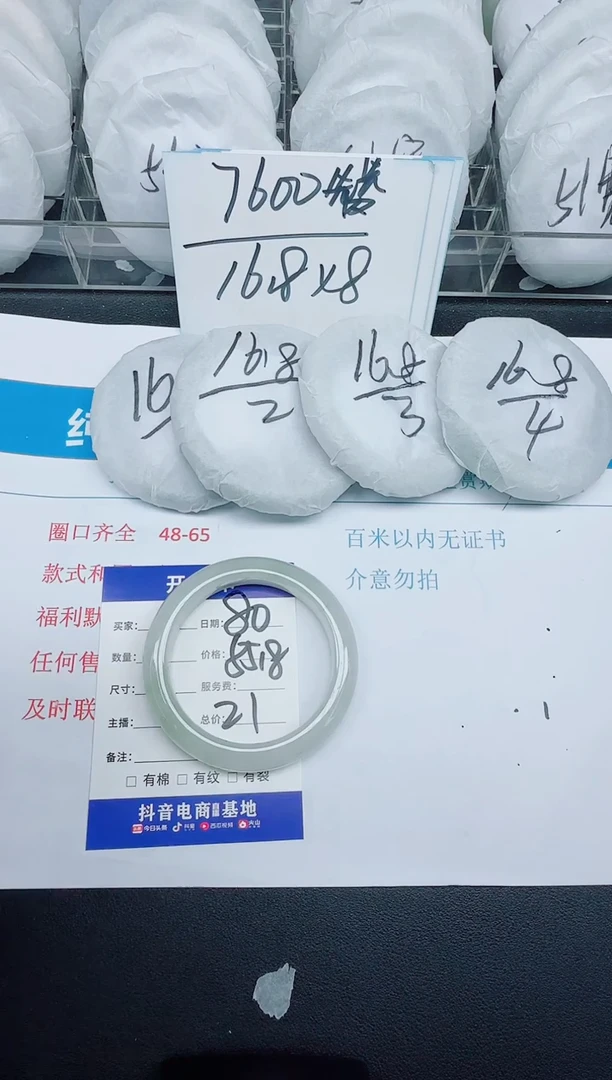 7600
16.8×8
16
16.8
2
16.8
3
16.8
4
圈口齐全 48-65
款式和
福利默
任何售
及时联
百米以内无证书
介意勿拍
买家: 日期: 80
数量: 价格: 5518
尺寸: 服务费:
主播: 总价: 21
备注:
□ 有棉 □ 有纹 □ 有裂
抖音电商自播基地
今日头条 抖音 西瓜视频 火山